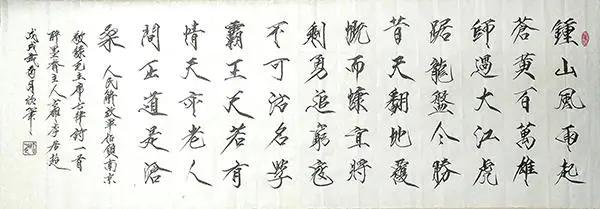 鍾山風雨起
蒼黃百萬雄
師過大江虎
踞龍盤今勝
昔天翻地覆
慨而慷宜將
剩勇追窮寇
不可沽名學
霸王天若有
情天亦老人
間正道是滄
桑 人民解放軍佔領南京
敬録毛主席七律詩一首
醉墨齋主人
戊戌